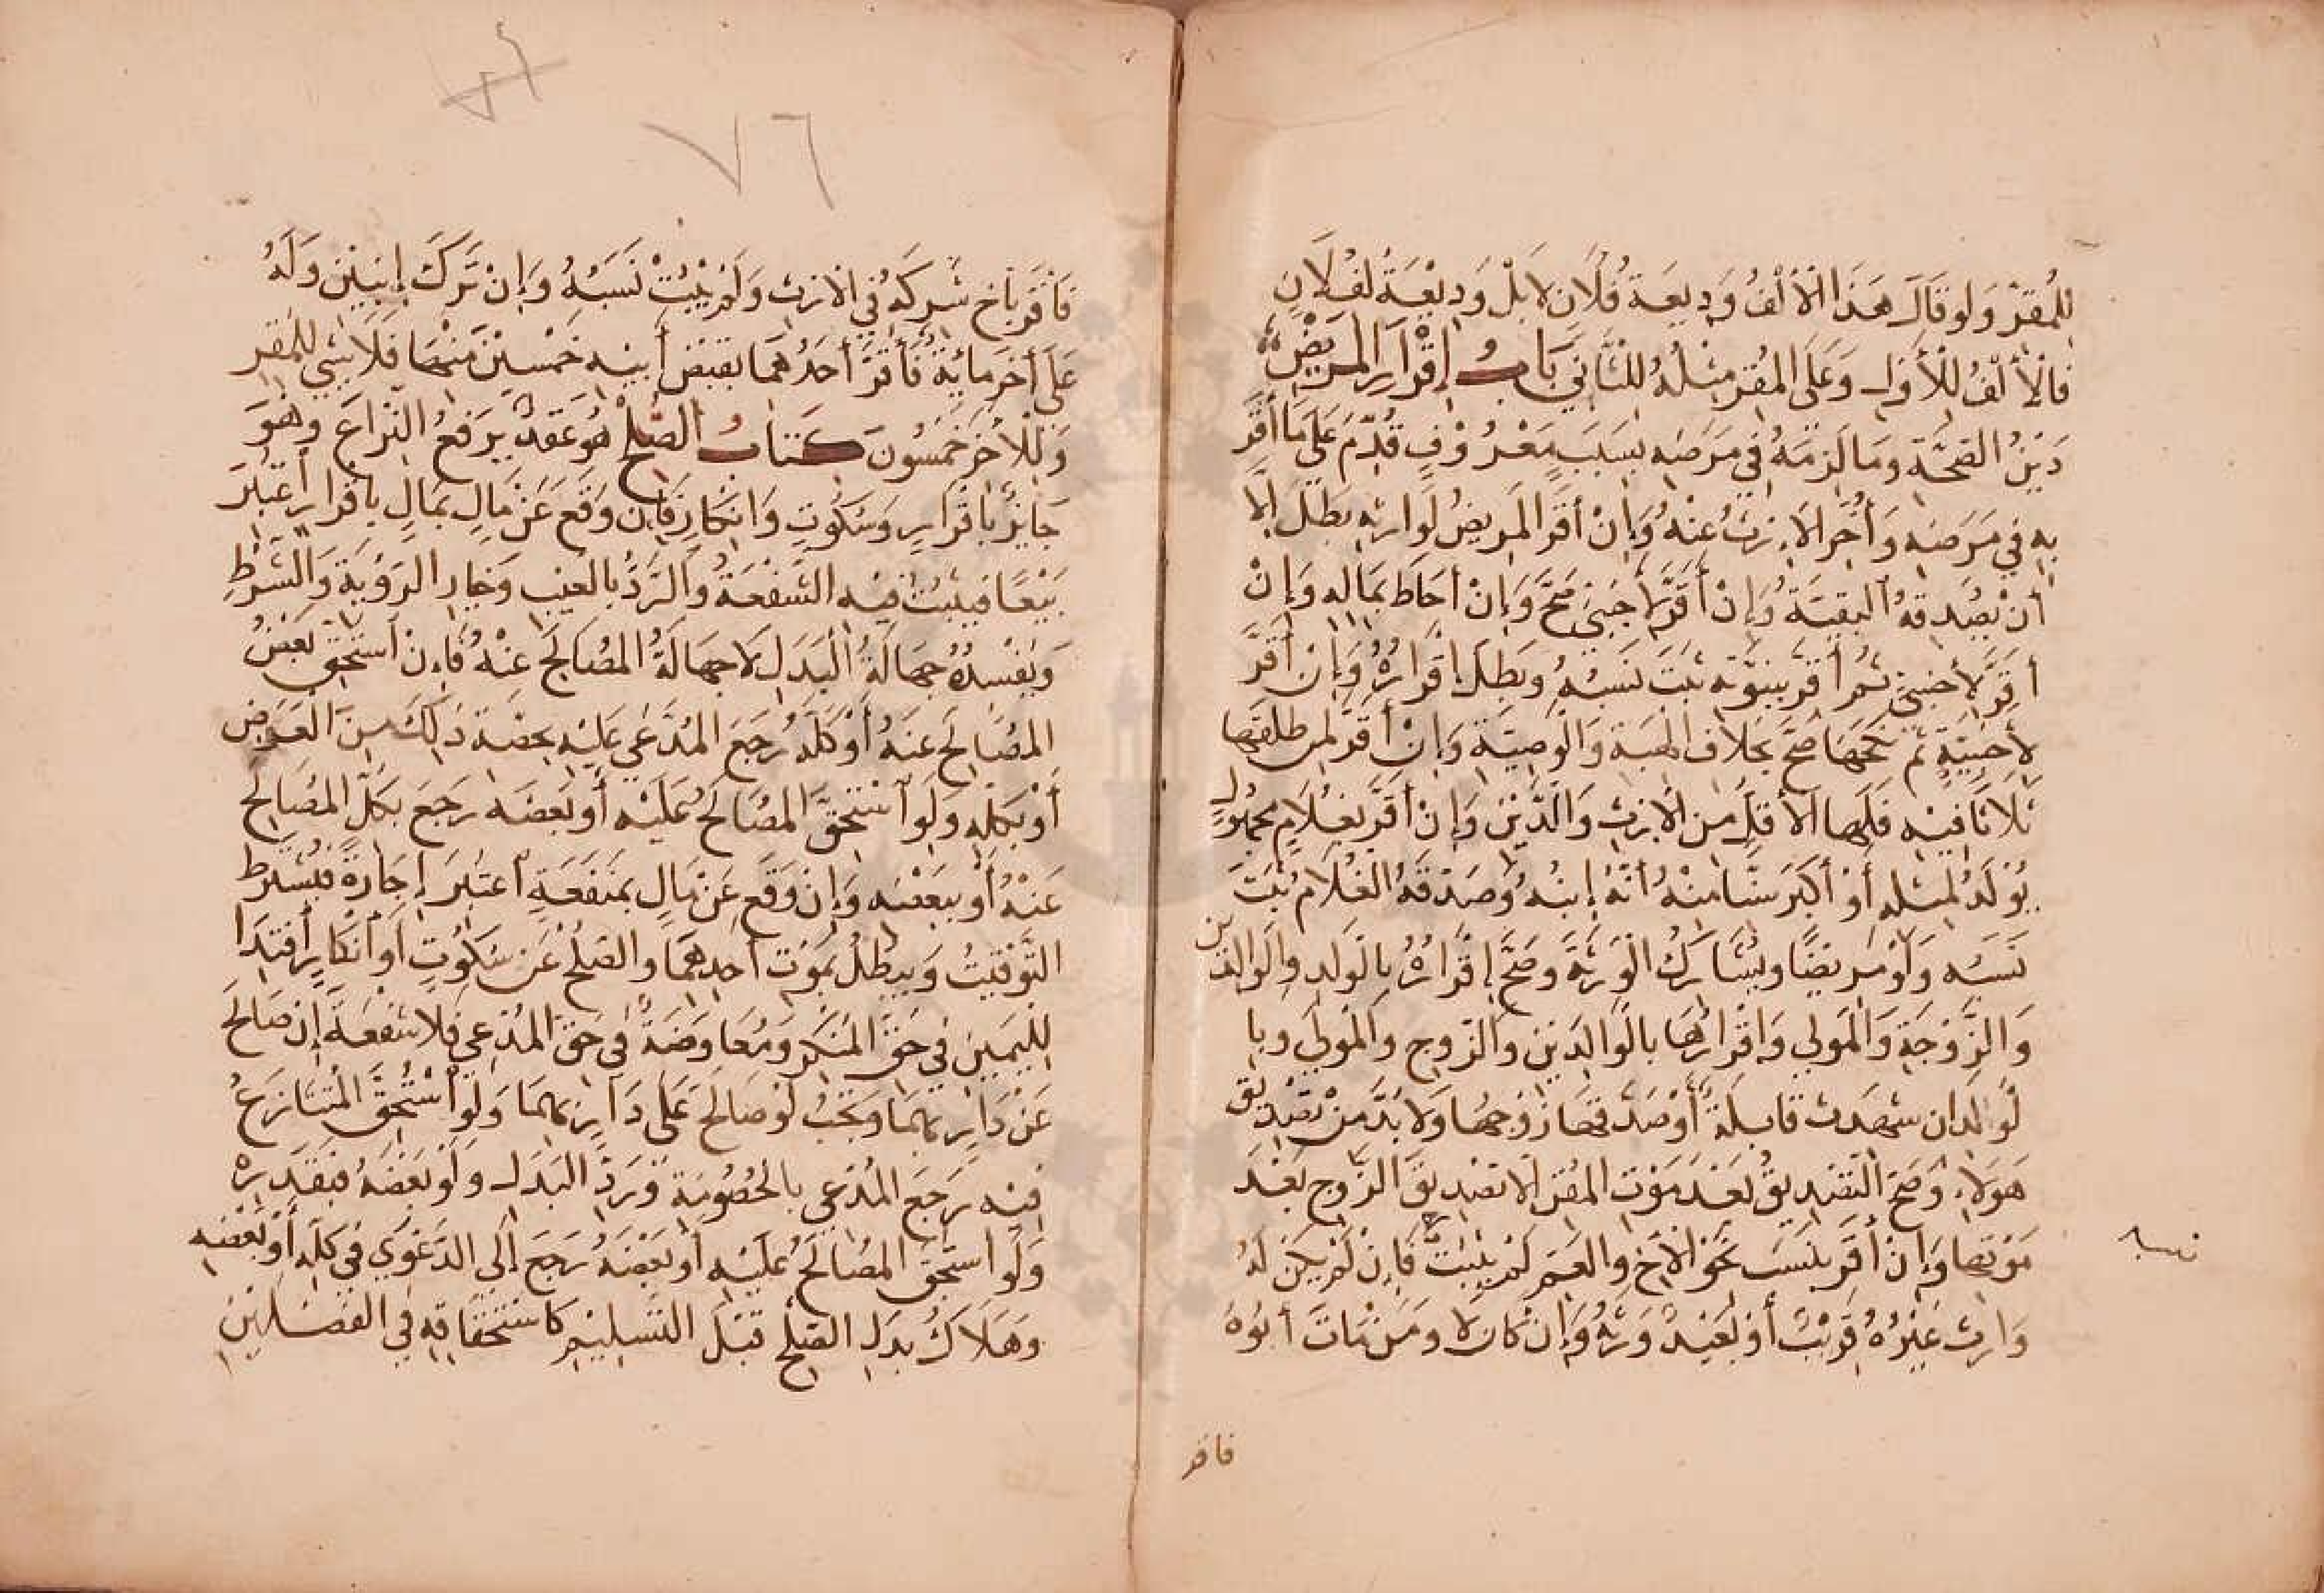 لِلْمُقِرِّ وَلَو قَالَ هَذَا الْأَلْفُ وَدِيعَة فُلَانٍ لَا بَلْ وَدِيْعَةُ لِفُلَانٍ
فَالْأَلْفُ لِلْأَوَّلِ وَعَلَى المُقِرِّ مِثْلُهُ لِلثَّانِي بَابُ إِقْرَارِ المَرِيْضِ
دَيْنُ الصِّحَّةِ وَمَا لَزِمَهُ فِي مَرَضِهِ بِسَبَبٍ مَعْرُوْفٍ قُدِّمَ عَلَى مَا أَقَرَّ
بِهِ فِي مَرَضِهِ وَأُخِّرَ الْإِرْثُ عَنْهُ وَإِنْ أَقَرَّ المَرِيضُ لِوَارِثِهِ بَطَلَ إِلَّا
أَنْ يُصَدِّقَهُ الْبَقِيَّةُ وَإِنْ أَقَرَّ لِأَجْنَبِيٍّ صَحَّ وَإِنْ أَحَاطَ بِمَالِهِ وَإِنْ
أَقَرَّ لِأَجْنَبِيٍّ ثُمَّ أَقَرَّ بِبُنُوَّتِهِ ثَبَتَ نَسَبُهُ وَبَطَلَ إِقْرَارُهُ وَإِنْ أَقَرَّ
لِأَجْنَبِيَّةٍ ثُمَّ نَكَحَهَا صَحَّ بِخِلَافِ الهِبَةِ وَالْوَصِيَّةِ وَإِنْ أَقَرَّ لِمَنْ طَلَّقَهَا
ثَلَاثًا فِيْهِ فَلَهَا الْأَقَلُّ مِنَ الْإِرْثِ وَالدَّيْنِ وَإِنْ أَقَرَّ بِغُلَامٍ مَجْهُولٍ
يُوْلَدُ لِمِثْلِهِ أَوْ أَكْبَرَ سِنًّا مِنْهُ أَنَّهُ إِبْنُهُ وَصَدَّقَهُ الغُلَامُ ثَبَتَ
نَسَبُهُ وَلَوْ مَرِيضًا وَيُشَارِكُ الْوَرَثَةَ وَصَحَّ إِقْرَارُهُ بِالْوَلَدِ وَالْوَالِدَيْنِ
وَالزَّوْجَةِ وَالْمَوْلَي وَإِقْرَارُهَا بِالْوَالِدَيْنِ وَالزَّوجِ وَالْمَوْلَي وَبِا
لْوَلَدِ إِن شَهِدَتْ قَابِلَةٌ أَوْ صَدَّقَهَا زَوْجُهَا وَلَا بُدَّ مِنْ تَصْدِيْقِ
هَؤُلَاءِ وَصَحَّ التَّصْدِيقُ بَعْدَ مَوْتِ المُقِرِّ إِلَّا تَصْدِيْقَ الزَّوجِ بَعْدَ
مَوْتِهَا وَإِنْ أَقَرَّ بِنَسَبِ نَحْوِ الْأَخِ وَالعَمِّ لَمْ يَثْبُتْ فَإِنْ لَمْ يَكُنْ لَهُ
وَارِثٌ غَيْرُهُ قَرِيْبٌ أَوْ بَعِيْدٌ وَرِثَهُ وَإِنْ كَانَ لَا وَمَنْ مَاتَ أَبُوْهُ
فاقر
فَأَقَرَّ بِأَخٍ شَرِكَهُ فِي الْإِرْثِ وَلَمْ يَثْبُتْ نَسَبُهُ وَإِنْ تَرَكَ إِبْنَيْنِ وَلَهُ
عَلَى أَخَرَ مِائَةٌ فَأَقَرَّ أَحَدُهُمَا بِقَبْضِ أَبِيْهِ خَمْسِيْنَ مِنْهَا فَلَا شَيْ لِلْمُقِرِّ
وَلِلْأَخَرِ خَمْسُونَ كِتَابُ الصُّلْحِ هُوَ عَقْدٌ يَرْفَعُ النِّزَاعَ وَهُوَ
جَايِزٌ بِإِقْرَارٍ وَسُكُوْتٍ وَإِنْكَارٍ فَإِنْ وَقَعَ عَنْ مَالٍ بِمَالٍ بِإِقْرَارٍ أُعْتُبِرَ
بَيْعًا فَيَثْبُتُ فِيْهِ الشُّفْعَةُ وَالرَّدُّ بِالعَيْبِ وَخِيَارِ الرُّؤْيَةِ وَالشَّرْطِ
وَيُفْسِدُهُ جَهَالَةُ الْبَدَلِ لَا جَهَالَةُ المُصَالَحِ عَنْهُ فَإِنْ اسْتُحِقَّ بَعْضُ
المُصَالَحِ عَنْهُ أَوْ كُلُّهُ رَجَعَ المُدَّعَي عَلَيْهِ بِحِصَّةِ ذَلِكَ مِنَ الْعِوَضِ
أَوْ بِكُلِّهِ وَلَوِ اسْتُحِقَّ المُصَالَحُ عَلَيْهِ أَوْ بَعْضُهُ رَجَعَ بِكُلِّ المُصَالَحِ
عَنْهُ أَوْ بِبَعْضِهِ وَإِنْ وَقَعَ عَنْ مَالٍ بِمَنْفَعَةٍ اُعْتُبِرَ إِجَارَةً فَيُشْتَرَطُ
التَّوْقِيْتُ وَيَبْطُلُ بِمَوْتِ أَحَدِهِمَا وَالصُّلْحُ عَنْ سُكُوْتٍ أَوْ اَنْكَارٍ اِفْتِدَا
لِلْيَمِيْنِ فِي حَقِّ الْمُنْكِرِ وَمُعَاوَضَةٌ فِي حَقِّ المُدَّعِي فَلَا شُفْعَةَ إِنْ صَالَحَ
عَنْ دَارٍ بِهِمَا وَتَجِبُ لَوْ صَالَحَ عَلَي دَارٍ بِهِمَا وَلَوِ اسْتُحِقَّ الْمُتَنَازَعُ
فِيْهِ رَجَعَ المُدَّعِي بِالْخُصُوْمَةِ وَرَدَّ البَدَلَ وَلَوْ بَعْضُهُ فَبِقَدْرِهِ
وَلَوْ اسْتُحِقَّ المُصَالَحُ عَلَيْهِ أَوْ بَعْضُهُ رَجَعَ إِلَي الدَّعْوَي فِي كُلِّهِ أَوْ بَعْضِهِ
وَهَلَاكُ بَدَلِ الصُّلْحِ قَبْلَ التَّسْلِيْمِ كَاسْتِحْقَاقِهِ فِي الفَصْلَيْنِ